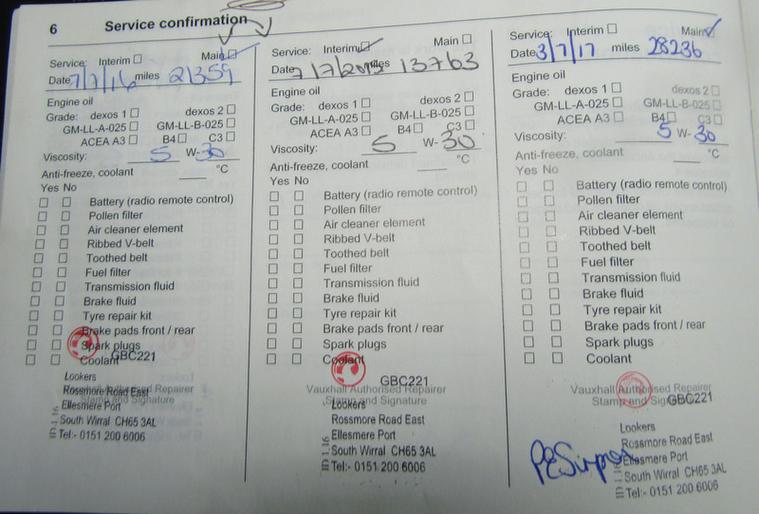 6 Service confirmation
Service: Interim Main
Date 7/7/16 miles 21359
Engine oil
Grade: dexos 1 dexos 2
GM-LL-A-025 GM-LL-B-025
ACEA A3 B4 C3
Viscosity: 5 W- 30
Anti-freeze, coolant °C
Yes No
Battery (radio remote control)
Pollen filter
Air cleaner element
Ribbed V-belt
Toothed belt
Fuel filter
Transmission fluid
Brake fluid
Tyre repair kit
Brake pads front / rear
Spark plugs
Coolant
GBC221
Authorised Repairer
Stamp and Signature
Lookers
Rossmore Road East
Ellesmere Port
South Wirral CH65 3AL
Tel:- 0151 200 6006
ID 1.16
Service: Interim Main
Date 7/7/2015 miles 13763
Engine oil
Grade: dexos 1 dexos 2
GM-LL-A-025 GM-LL-B-025
ACEA A3 B4 C3
Viscosity: 5 W- 30
Anti-freeze, coolant °C
Yes No
Battery (radio remote control)
Pollen filter
Air cleaner element
Ribbed V-belt
Toothed belt
Fuel filter
Transmission fluid
Brake fluid
Tyre repair kit
Brake pads front / rear
Spark plugs
Coolant
GBC221
Vauxhall Authorised Repairer
Stamp and Signature
Lookers
Rossmore Road East
Ellesmere Port
South Wirral CH65 3AL
Tel:- 0151 200 6006
ID 1.16
Service: Interim Main
Date 3/7/17 miles 28236
Engine oil
Grade: dexos 1 dexos 2
GM-LL-A-025 GM-LL-B-025
ACEA A3 B4 C3
Viscosity: 5 W- 30
Anti-freeze, coolant °C
Yes No
Battery (radio remote control)
Pollen filter
Air cleaner element
Ribbed V-belt
Toothed belt
Fuel filter
Transmission fluid
Brake fluid
Tyre repair kit
Brake pads front / rear
Spark plugs
Coolant
Vauxhall Authorised Repairer
Stamp and GBC221
Lookers
Rossmore Road East
Ellesmere Port
South Wirral CH65 3AL
Tel:- 0151 200 6006
ID 1.16